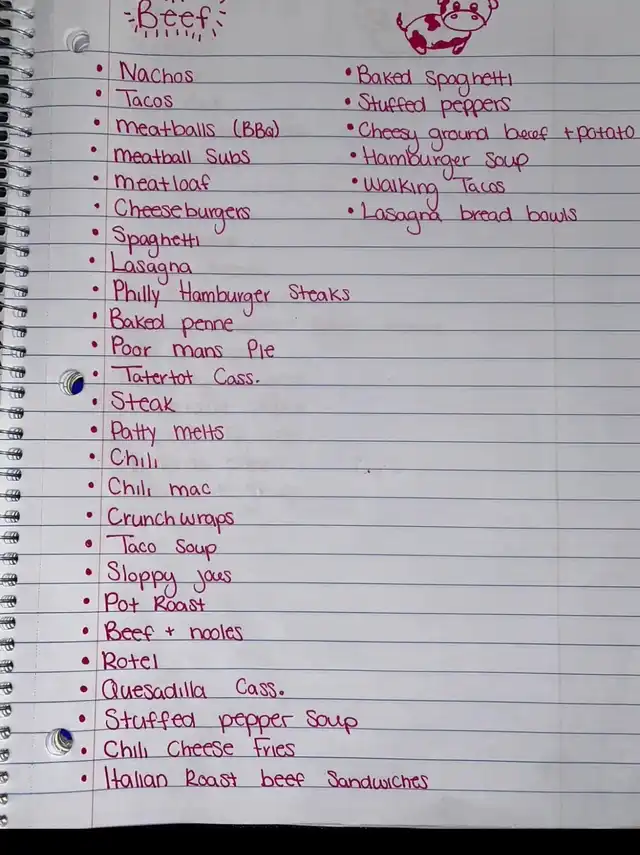 Beef
• Nachos
• Tacos
• meatballs (BBQ)
• meatball Subs
• meatloaf
• Cheeseburgers
• Spaghetti
• Lasagna
• Philly Hamburger Steaks
• Baked penne
• Poor mans Pie
• Tatertot Cass.
• Steak
• Patty melts
• Chili
• Chili mac
• Crunchwraps
• Taco Soup
• Sloppy joes
• Pot Roast
• Beef + nooles
• Rotel
• Quesadilla Cass.
• Stuffed pepper Soup
• Chili Cheese Fries
• Italian Roast beef Sandwiches
• Baked Spaghetti
• Stuffed peppers
• Cheesy ground beef + potato
• Hamburger Soup
• Walking Tacos
• Lasagna bread bowls